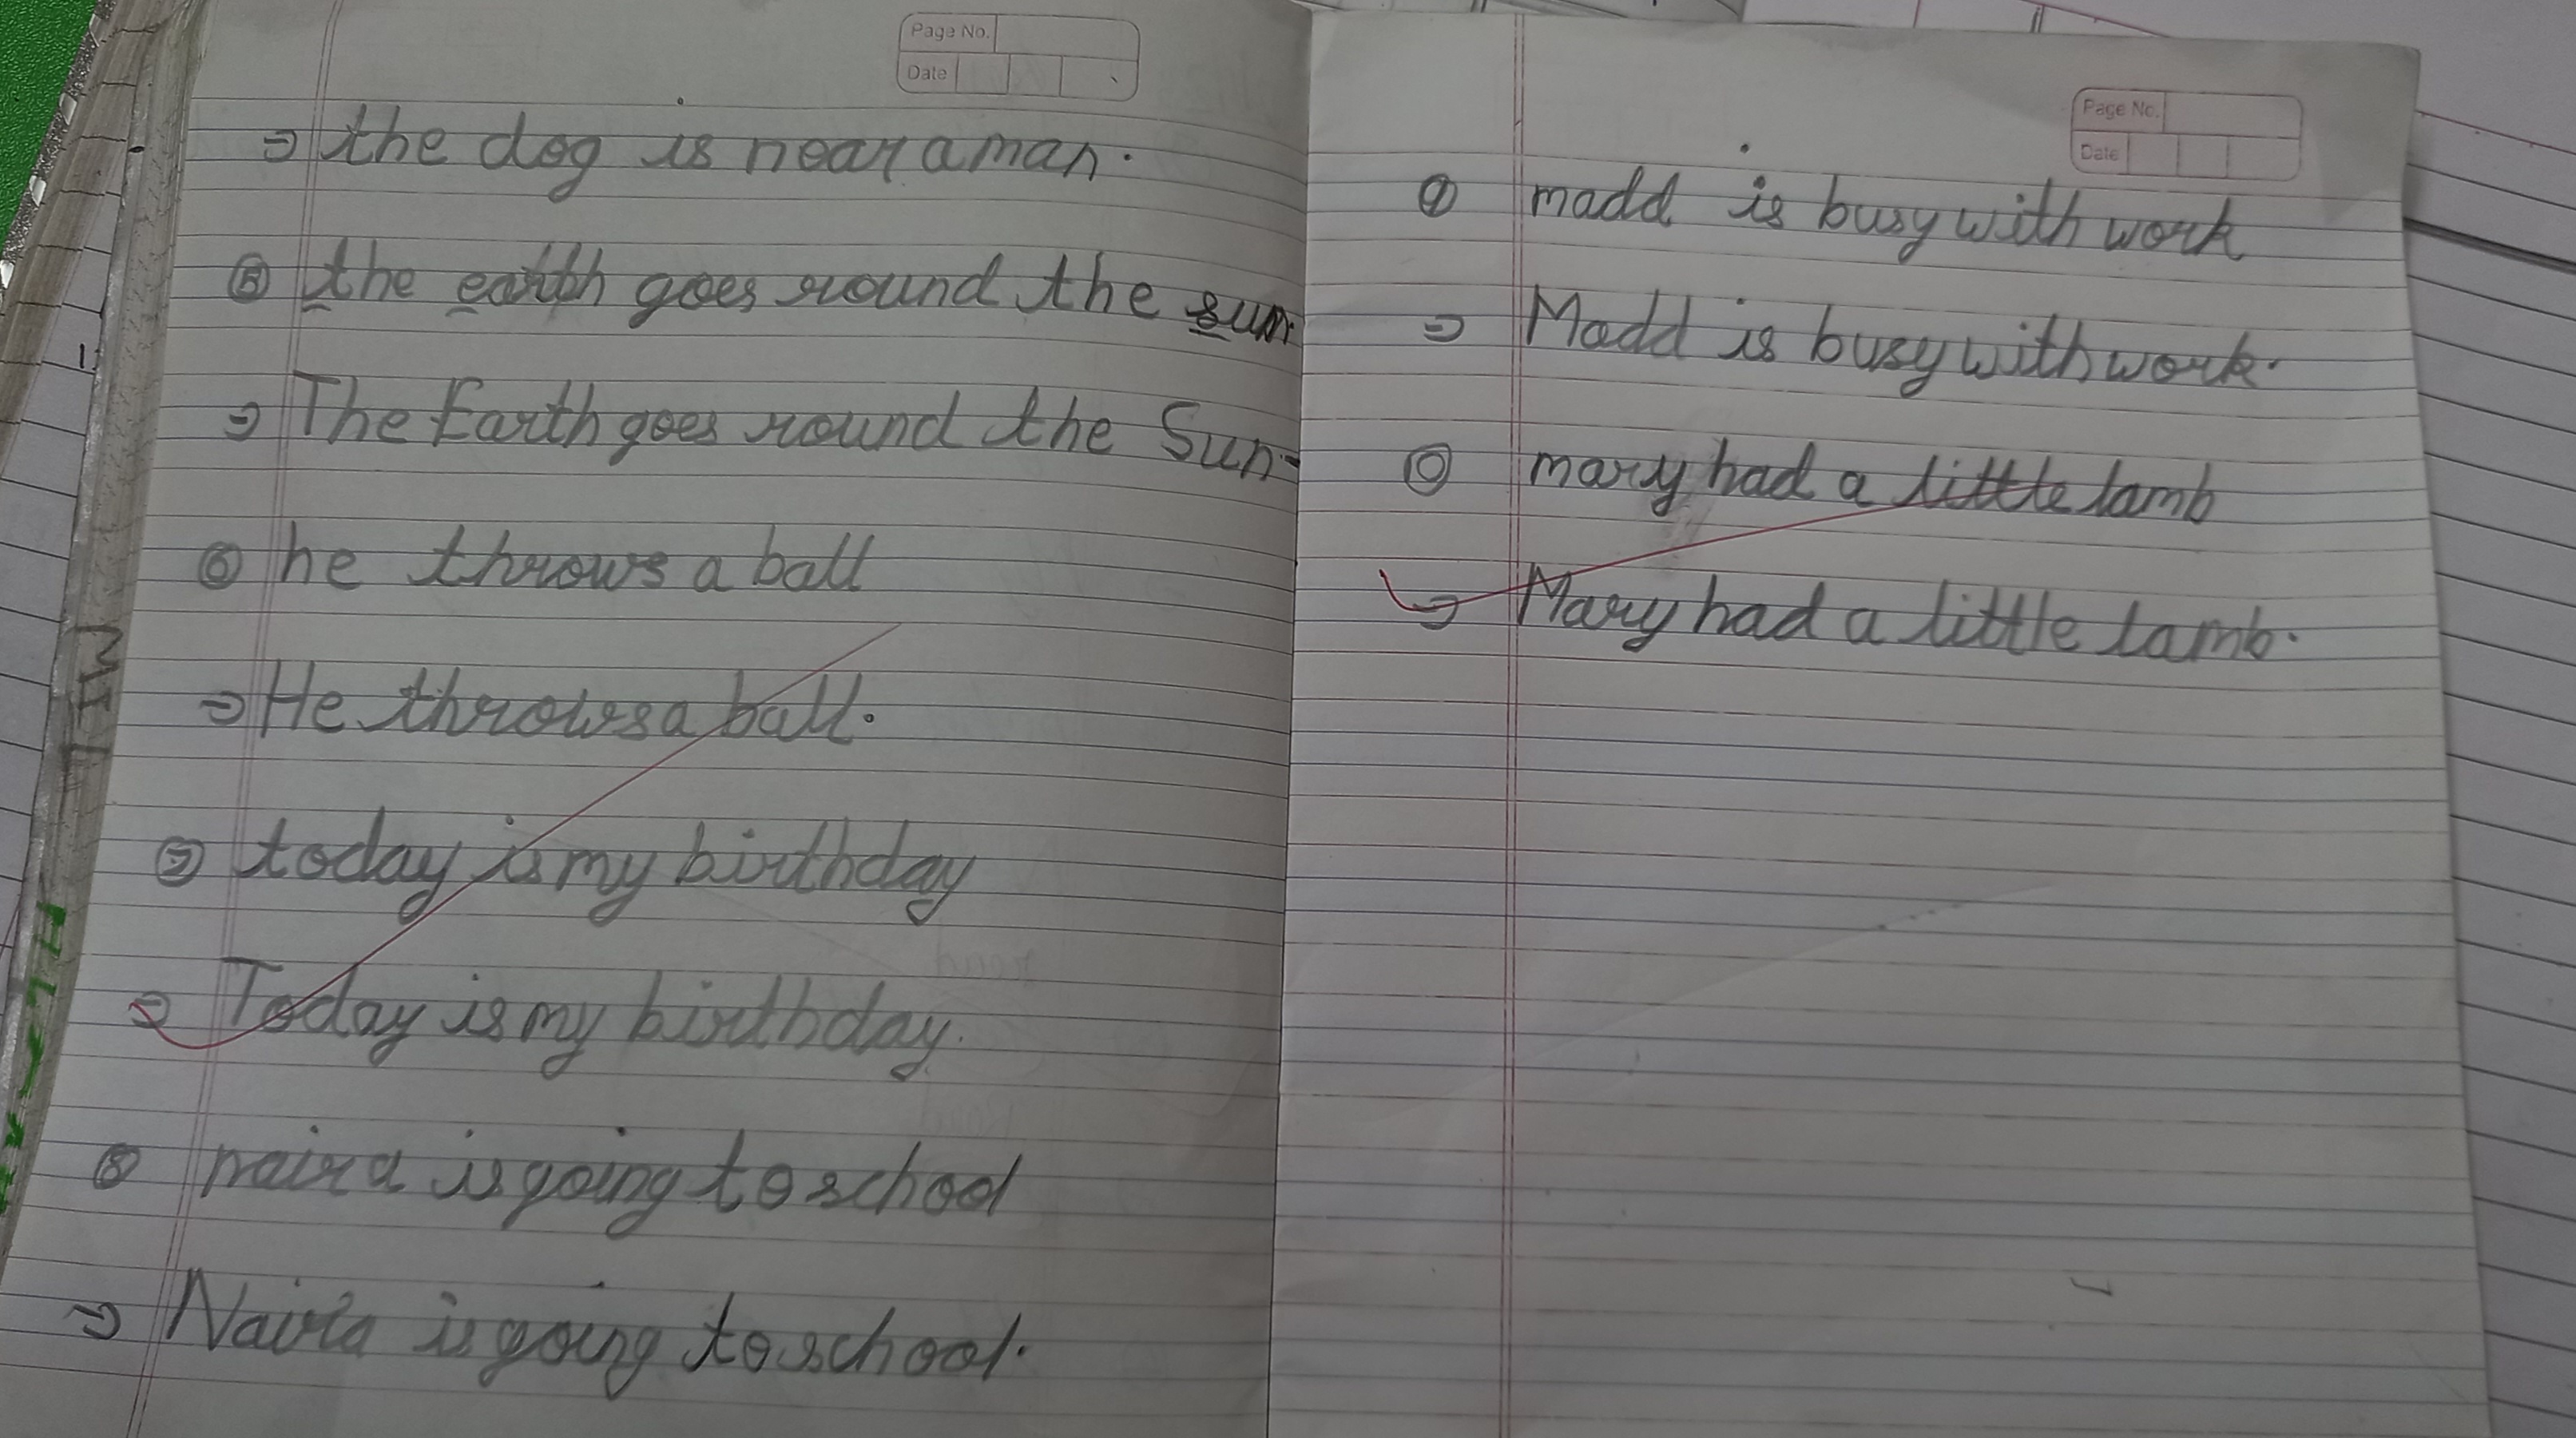 Page No.
Date
⇒ the dog is near a man.
⑤ the earth goes round the sun.
⇒ The Earth goes round the Sun.
⑥ he throws a ball
⇒ He throws a ball.
⑦ today is my birthday
⇒ Today is my birthday.
⑧ naira is going to school
⇒ Naira is going to school.
Page No.
Date
⑨ madd is busy with work
⇒ Madd is busy with work.
⑩ mary had a little lamb
⇒ Mary had a little lamb.